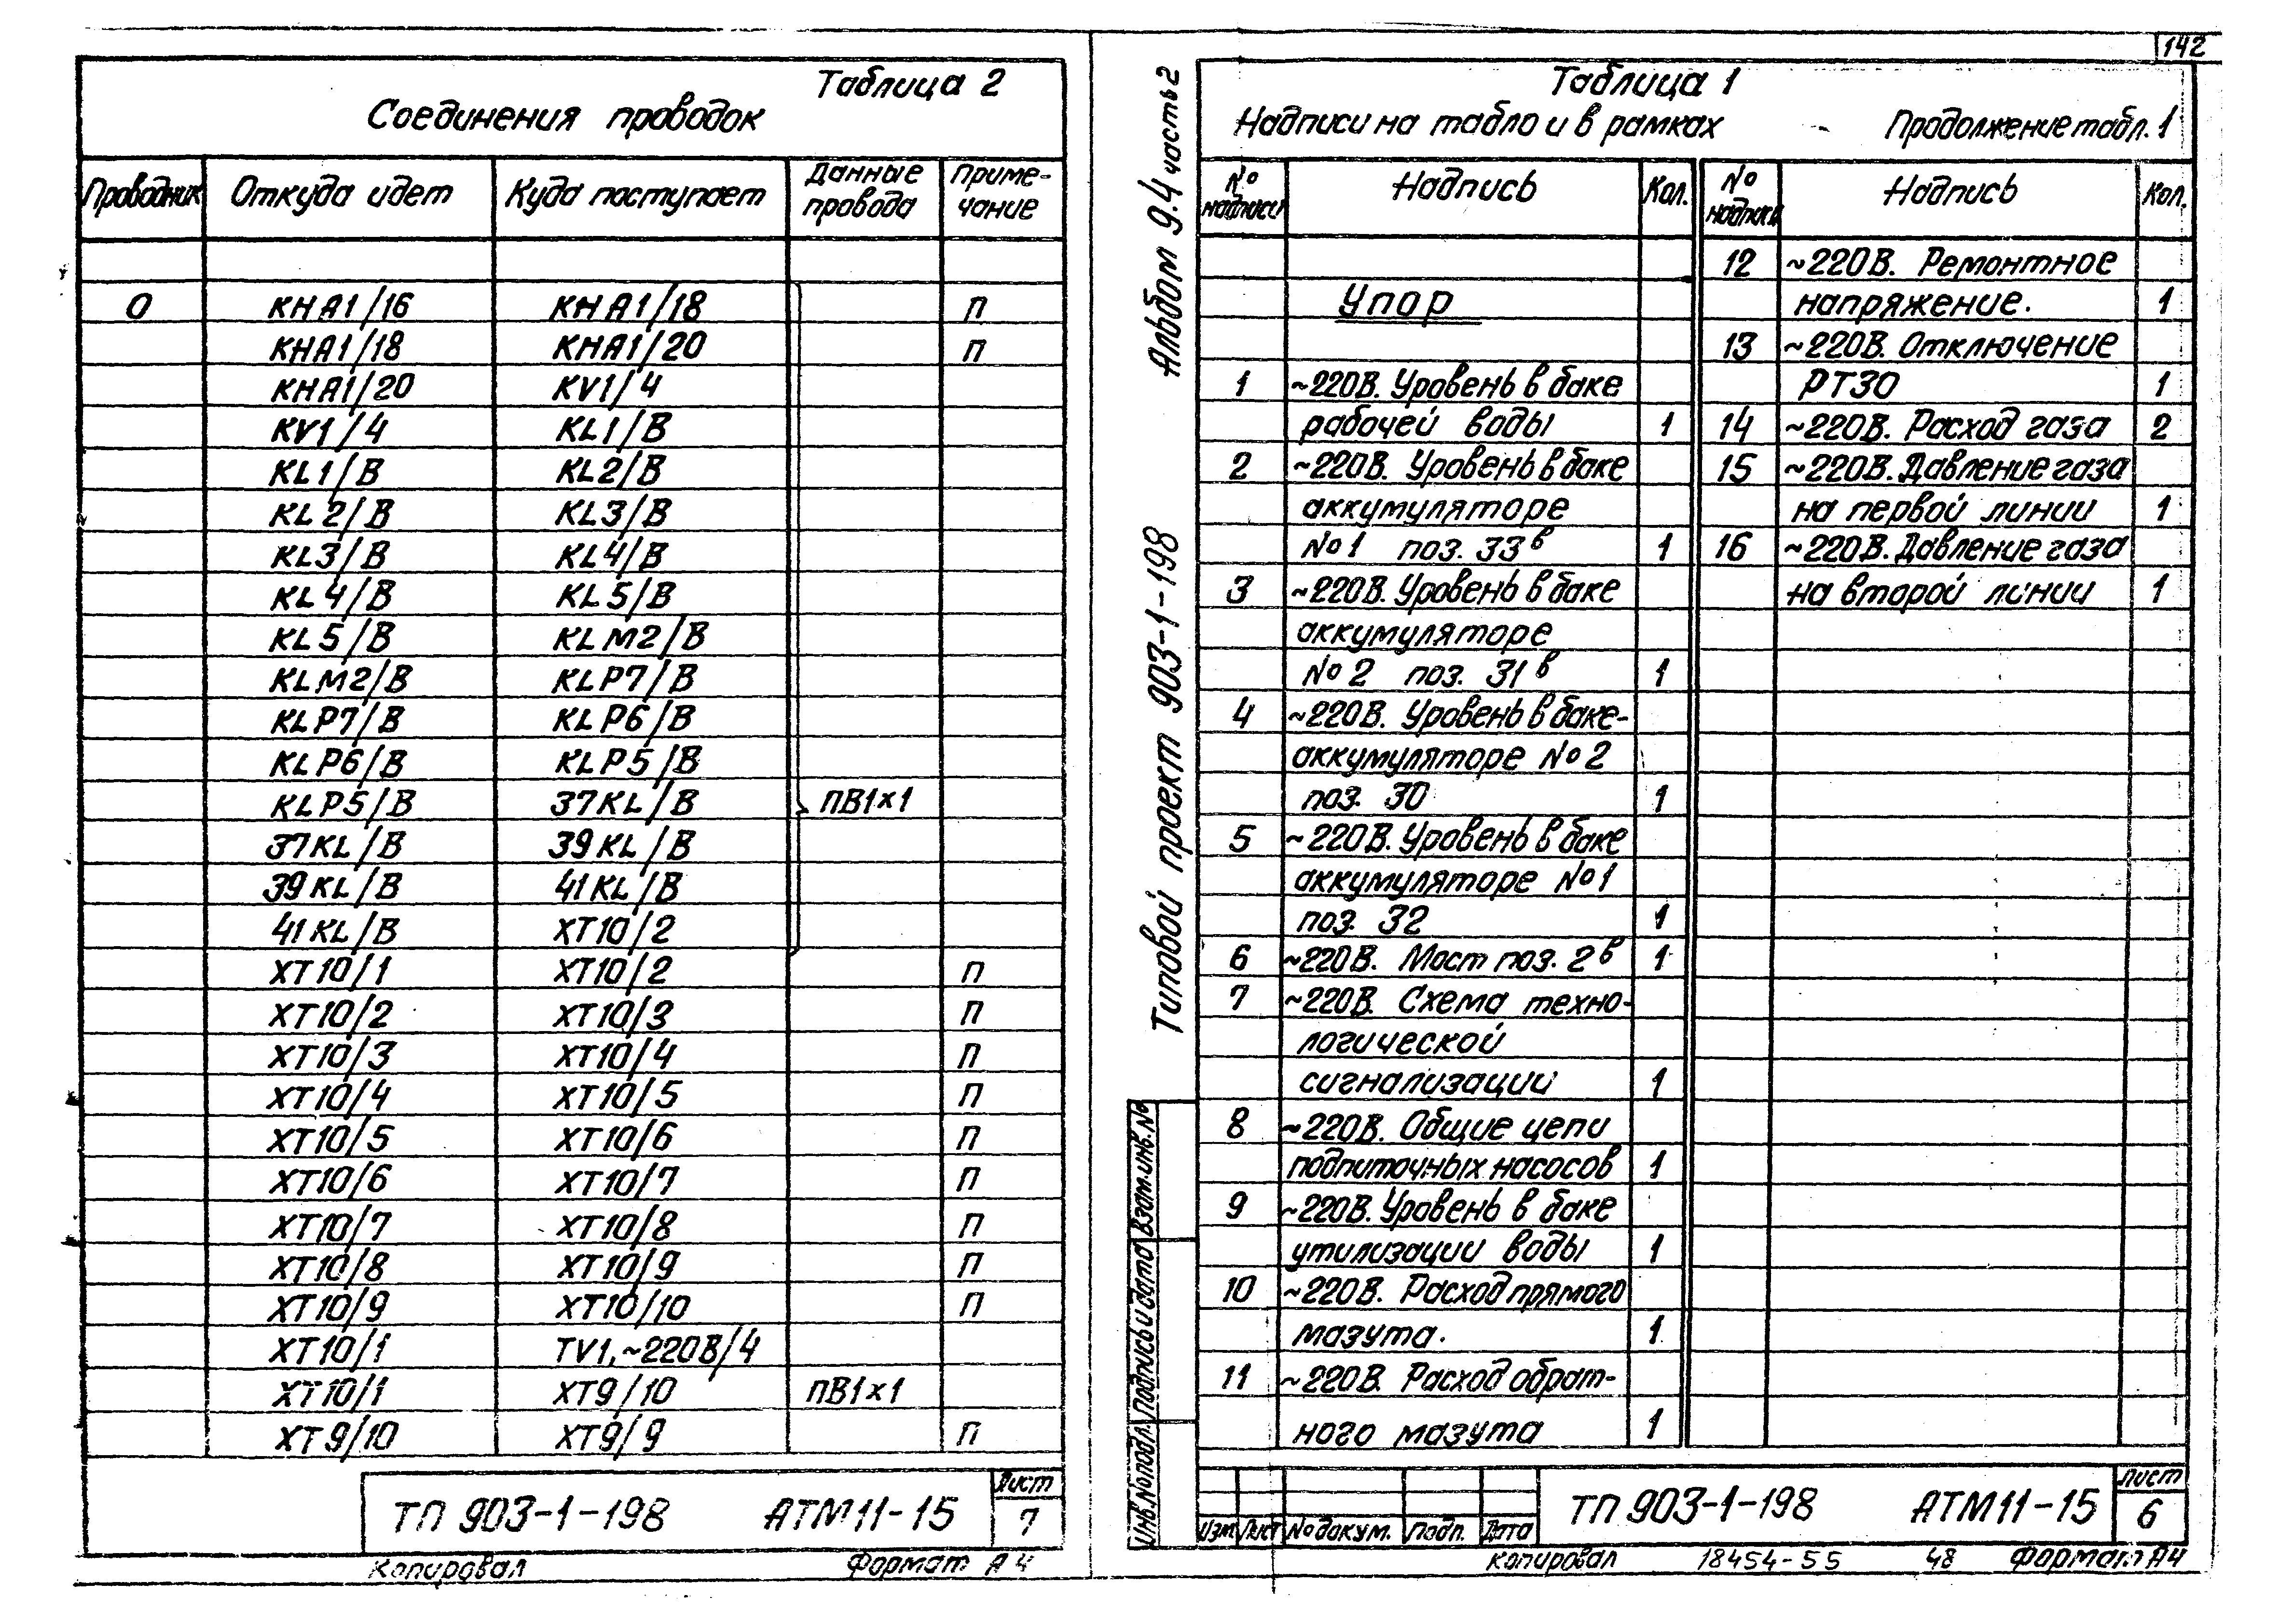 142
Таблица 2
Соединения проводок
Проводник Откуда идет Куда поступает Данные провода Приме-чание
0 КНА1/16 КНА1/18 П
КНА1/18 КНА1/20 П
КНА1/20 KV1/4
KV1/4 KL1/B
KL1/B KL2/B
KL2/B KL3/B
KL3/B KL4/B
KL4/B KL5/B
KL5/B KLM2/B
KLM2/B KLP7/B
KLP7/B KLP6/B
KLP6/B KLP5/B
KLP5/B 37KL/B ПВ1х1
37KL/B 39KL/B
39KL/B 41KL/B
41KL/B XT10/2
XT10/1 XT10/2 П
XT10/2 XT10/3 П
XT10/3 XT10/4 П
XT10/4 XT10/5 П
XT10/5 XT10/6 П
XT10/6 XT10/7 П
XT10/7 XT10/8 П
XT10/8 XT10/9 П
XT10/9 XT10/10 П
XT10/1 TV1,~220В/4
XT10/1 XT9/10 ПВ1х1
XT9/10 XT9/9 П
ТП 903-1-198 АТМ11-15 Лист 7
Копировал Формат А4
Альбом 9.4 часть 2
Типовой проект 903-1-198
Взам.инв.№
Подпись и дата
Инв.№подл.
Таблица 1
Надписи на табло и в рамках Продолжение табл. 1
№ надписи Надпись Кол. № надписи Надпись Кол.
Упор
1 ~220В. Уровень в баке
рабочей воды 1
2 ~220В. Уровень в баке
аккумуляторе
№1 поз. 33в 1
3 ~220В. Уровень в баке
аккумуляторе
№2 поз. 31в 1
4 ~220В. Уровень в баке-
аккумуляторе №2
поз. 30 1
5 ~220В. Уровень в баке
аккумуляторе №1
поз. 32 1
6 ~220В. Мост поз. 2в 1
7 ~220В. Схема техно-
логической
сигнализации 1
8 ~220В. Общие цепи
подпиточных насосов 1
9 ~220В. Уровень в баке
утилизации воды 1
10 ~220В. Расход прямого
мазута. 1
11 ~220В. Расход обрат-
ного мазута 1
12 ~220В. Ремонтное
напряжение. 1
13 ~220В. Отключение
РТ30 1
14 ~220В. Расход газа 2
15 ~220В. Давление газа
на первой линии 1
16 ~220В. Давление газа
на второй линии 1
Изм Лист №докум. Подп. Дата
ТП 903-1-198 АТМ11-15 Лист 6
Копировал 18454-55 48 Формат А4